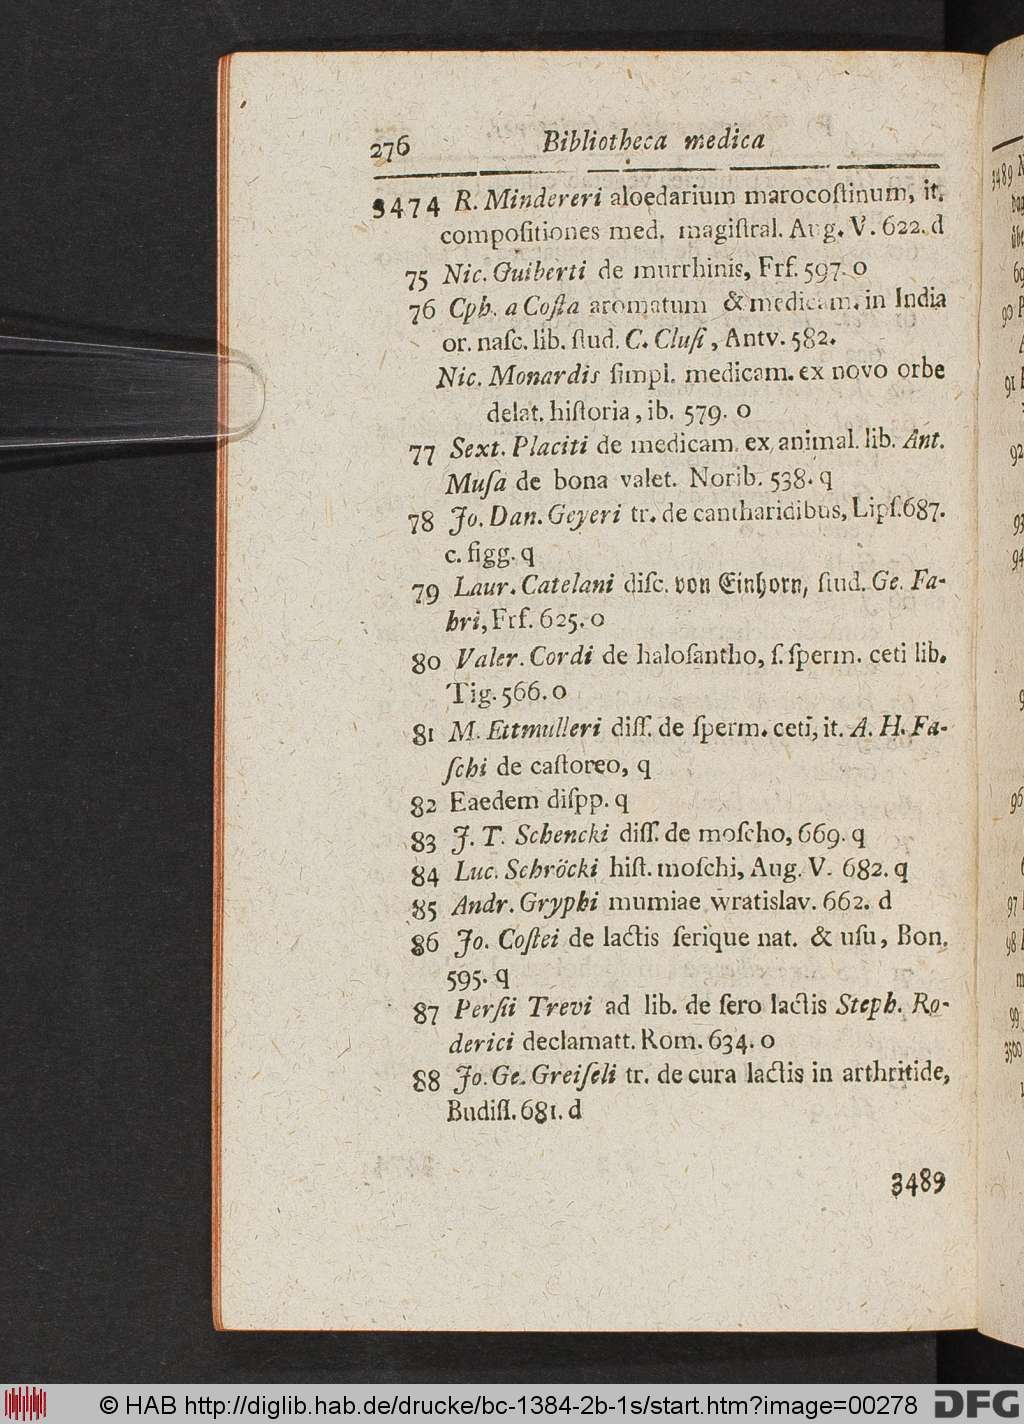 276 Bibliotheca medica
3474 R. Mindereri aloedarium marocoſtinum, it.
compoſitiones med. magiſtral. Aug. V. 622. d
75 Nic. Guiberti de murrhinis, Frf. 597. o
76 Cph. a Coſta aromatum & medicam. in India
or. naſc. lib. ſtud. C. Cluſi, Antv. 582.
Nic. Monardis ſimpl. medicam. ex novo orbe
delat. hiſtoria, ib. 579. o
77 Sext. Placiti de medicam. ex animal. lib. Ant.
Muſa de bona valet. Norib. 538. q
78 Jo. Dan. Geyeri tr. de cantharidibus, Lipſ. 687.
c. figg. q
79 Laur. Catelani diſc. von Einhorn, ſtud. Ge. Fa-
bri, Frf. 625. o
80 Valer. Cordi de haloſantho, ſ. ſperm. ceti lib.
Tig. 566. o
81 M. Ettmulleri diſſ. de ſperm. ceti, it. A. H. Fa-
ſchi de caſtoreo, q
82 Eaedem diſpp. q
83 J. T. Schencki diſſ. de moſcho, 669. q
84 Luc. Schröcki hiſt. moſchi, Aug. V. 682. q
85 Andr. Gryphi mumiae wratislav. 662. d
86 Jo. Coſtei de lactis ſerique nat. & uſu, Bon.
595. q
87 Perſii Trevi ad lib. de ſero lactis Steph. Ro-
derici declamatt. Rom. 634. o
88 Jo. Ge. Greiſeli tr. de cura lactis in arthritide,
Budiſſ. 681. d
3489
3489
90
91
92
93
94
96
97
98
99
3500
© HAB http://diglib.hab.de/drucke/bc-1384-2b-1s/start.htm?image=00278
DFG